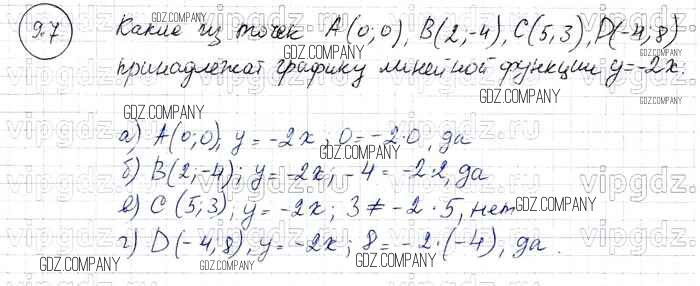 9.7 Какие из точек A(0;0), B(2;-4), C(5,3), D(-4,8)
принадлежат графику линейной функции y=-2x.
а) A(0;0), y = -2x; 0 = -2·0, да
б) B(2;-4); y = -2x; -4 = -2·2, да
в) C(5,3); y = -2x; 3 ≠ -2·5, нет
г) D(-4,8), y = -2x; 8 = -2·(-4), да.
GDZ.COMPANY
vipgdz.ru